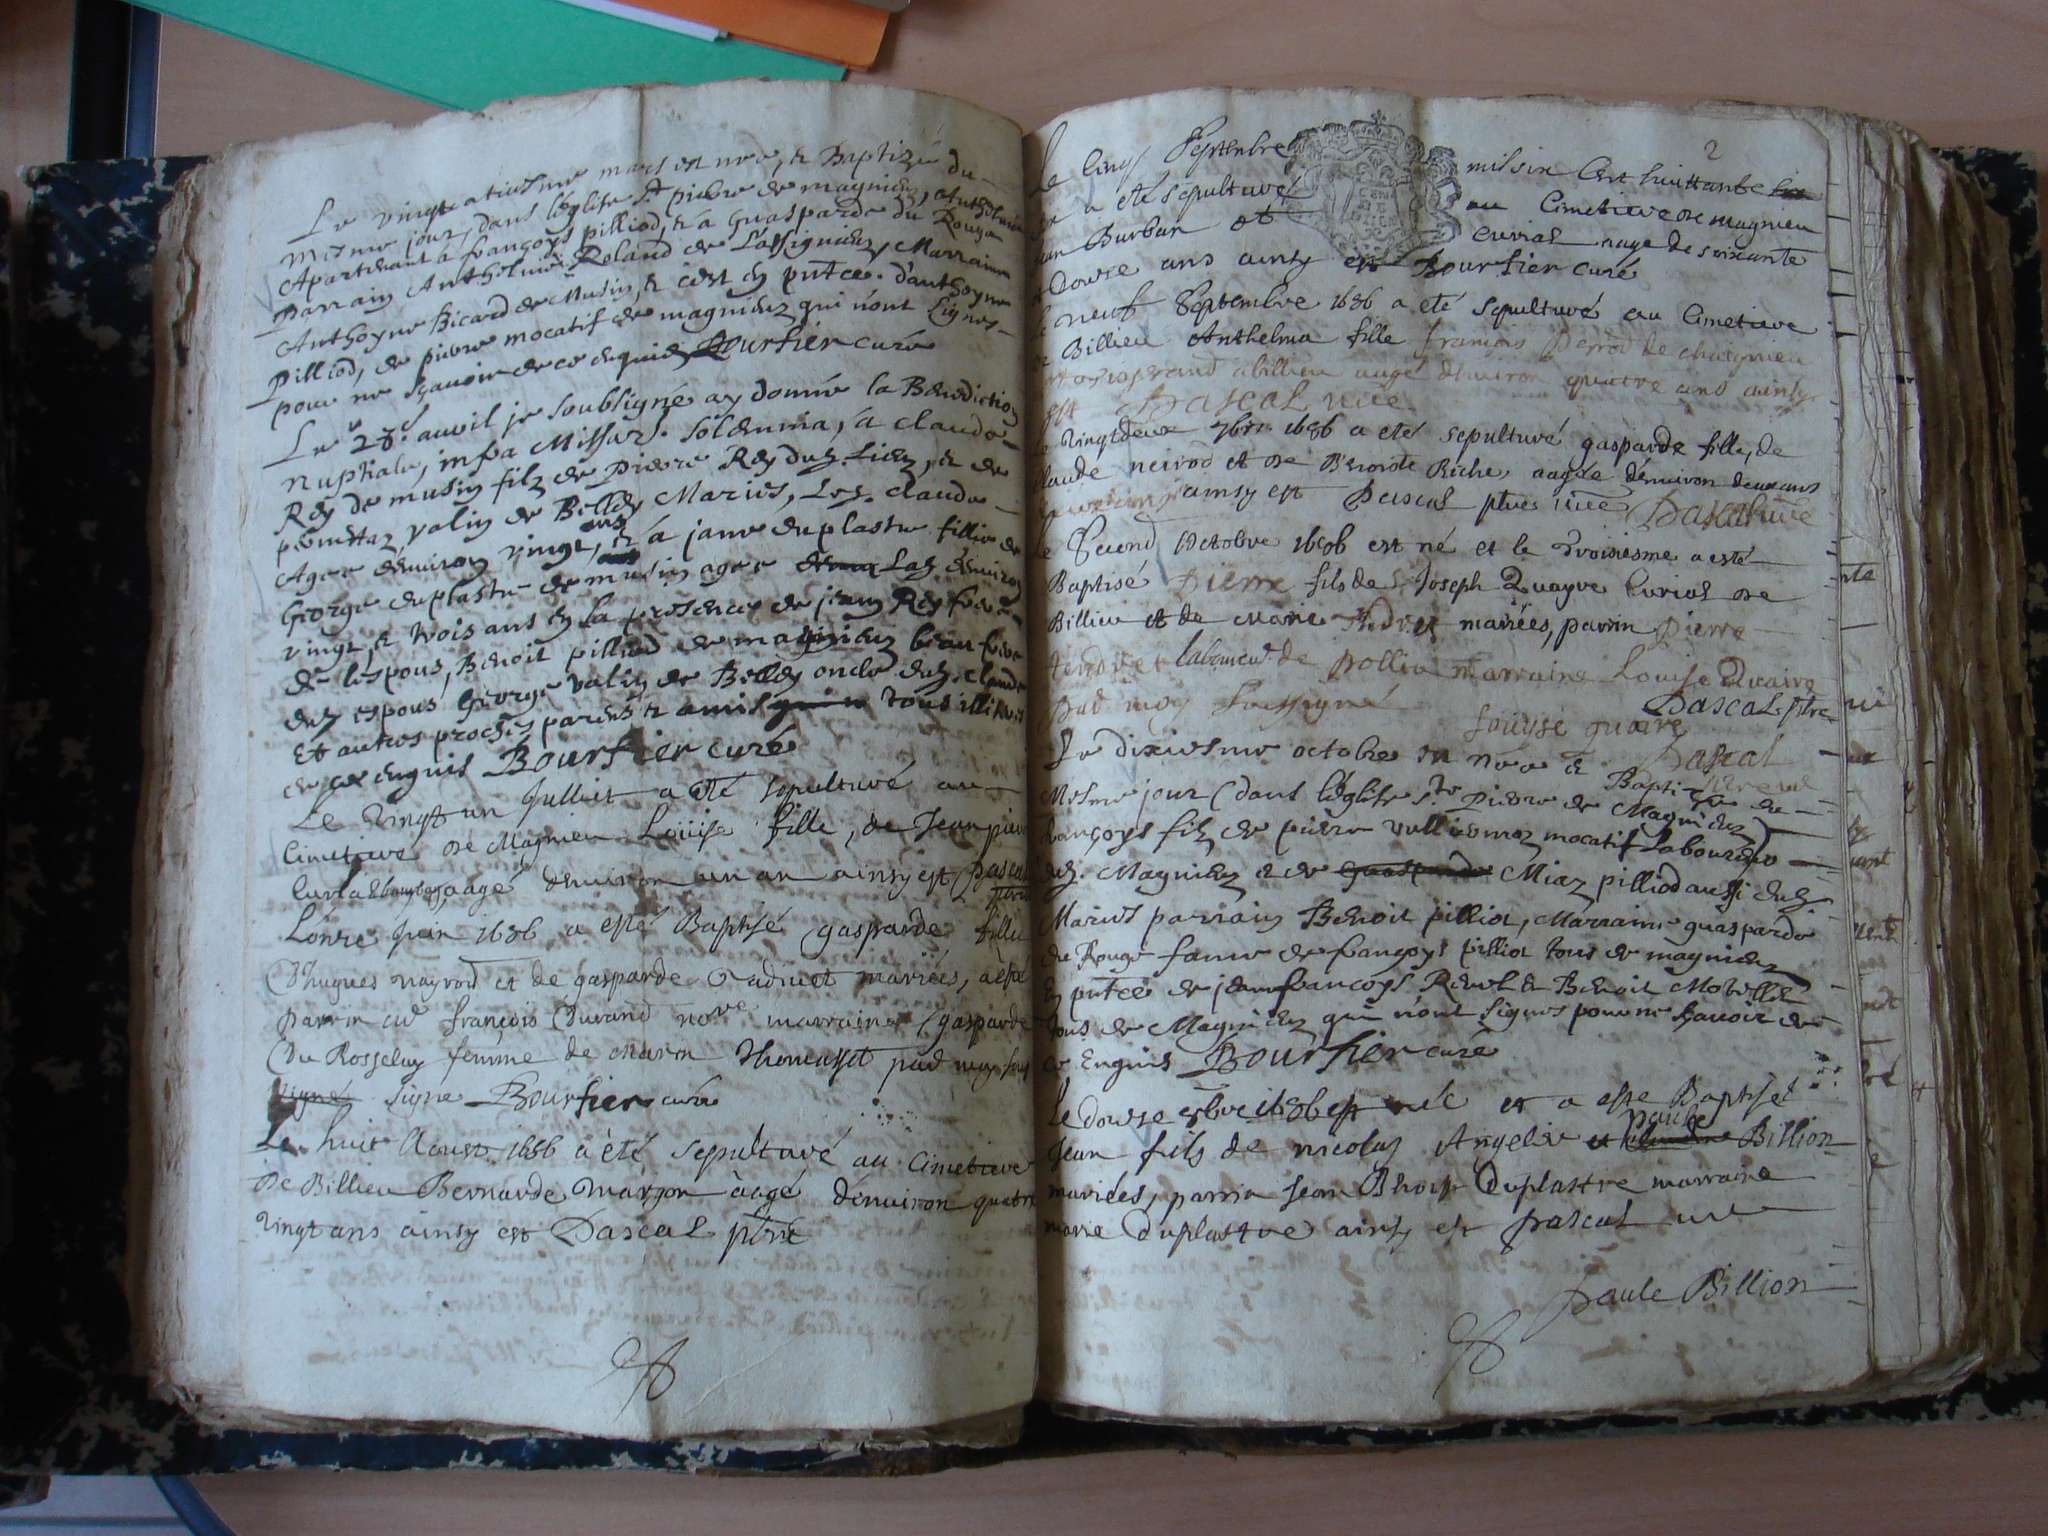 Le vingtcatriesme mars est nee, & Baptizée du
mesme jour, dans l'églisse St pierre de magnieu, Anthelmie
Apartenant à françoys pilliod, & à Guasparde du Rouge
parrain Anthelme Roland de Lassignieu, Marraine
Anthoyne Bicard de Musin, & c'est en pntce. d'anthoyne
Pilliod, de pierre mocatif de magnieu qui n'ont signes
pour ne sçauoir de ce enquis Bourfier curé
Le 23e. auril je soubsigné ay donné la Benediction
Nuptiale, infra Missar. solemnia, à claude
Rey de musin filz de Pierre Rey dud. lieu, & de
valin de Belley Mariés, Led. claude
Agee denuiron vingt ans, & à jane duplastre fillie de
George duplastre de musin agee Lad denuiron
vingt & trois ans en la presence de jean Rey frere
de lespous, Benoit pilliod de magnieu beau frere
dud espous George valin de Belley oncle dud. claude
Et autres proches parens & amis tous illiteres
de ce enquis Bourfier curé
Le vingt un Juillet a été sepulturé au
Cimetiere de Magnieu Loüise fille, de Jean pierre
aagé denuiron un an ainsy est Pascal
ptre
L'onze Juin 1686 a esté Baptisé gasparde fille
D'hugues nayrod et de gasparde mariées, a esté
parrin sr françois Durand nore marraine gasparde
Du Rosselay femme de Marin Thomasset pad moy sous
signé signe Bourfier curé
Le huit Aoust 1686 a été sepulturé au Cimetiere
De Billieu Bernarde margon aagé denuiron quatre
vingt ans ainsy est Pascal ptre
2
Le cinq Septembre mil six Cent huittante six
a été sepulturé au Cimetiere de magnieu
Burban et curial aage de soixante
Douze ans ainsy est Bourfier curé
Le neuf Septembre 1686 a eté sepulturé au Cimetiere
de Billieu Anthelma fille françois Perrod de chazinieu
abillieu aagé denuiron quatre ans ainsy
est Pascal vice
Le vingtdeux 7bre 1686 a eté sepulturé gasparde fille, de
Claude neirod et de Benoite Riche, aagée denuiron deux ans
ainsy est Pascal ptre vice Pascal vice
Le Second Octobre 1686 est né et le Troisiesme a esté
Baptisé Pierre fils de Sr Joseph Quayre Curial de
Billieu et de Marie Andret mariées, parrin Pierre
Andret laboureur de pollieu marraine Louise Quaire
pad moy soussigné Pascal ptre
louyse quaire
Le dixiesme octobre est née & Pascal
Baptizée du
Mesme jour (dans l'églisse Ste Pierre de Magnieu)
françoys filz de pierre vulliermoz mocatif laboureur
dud. Magnieu & de Guasparde Miaz pilliod aussi dud.
Mariés parrain Benoit pilliot, Marraine guasparde
du Rouge fame de françoys pilliot tous de magnieu
En pntce de jean françoys Revel & Benoit Motillet
tous de Magnieu qui n'ont signes pour ne sçauoir de
ce Enquis Bourfier curé
Le douze 8bre 1686 est née et a esté Baptisé
Jean fils de nicolas Angelier et paule Billion
mariées, parrin Jean Benoist Duplastre marraine
marie Duplastre ainsy est pascal vice
paule Billion